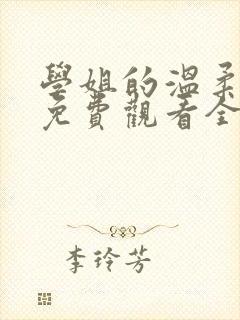 學姐的溫柔
免費觀看全
李玲芳